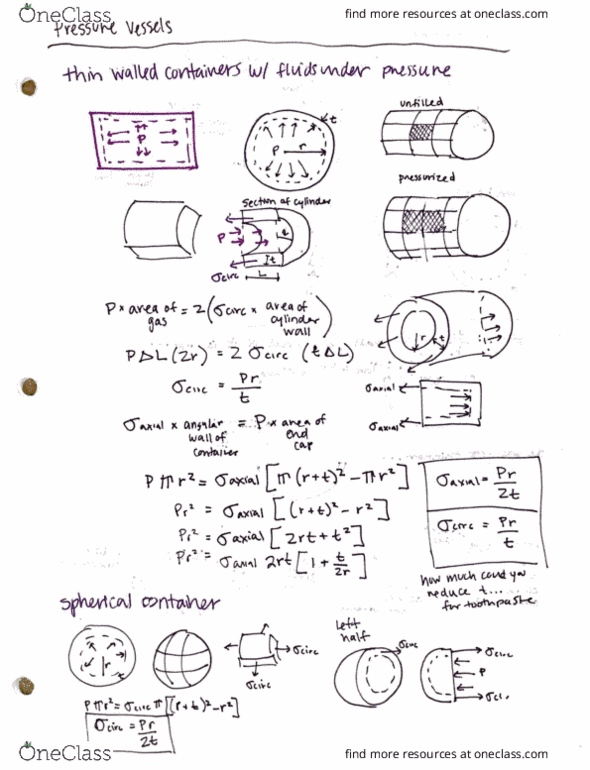 OneClass
find more resources at oneclass.com
Pressure Vessels
thin walled containers w/ fluids under pressure
P
P r t
unfilled
pressurized
section of cylinder
P t
It
σcirc L
r t
P × area of gas = 2(σcirc × area of cylinder wall)
PΔL(2r) = 2 σcirc (tΔL)
σcirc = Pr/t
σaxial
σaxial
σaxial × angular wall of container = P × area of end cap
Pπr² = σaxial[π(r+t)² − πr²]
Pr² = σaxial[(r+t)² − r²]
Pr² = σaxial[2rt + t²]
Pr² = σaxial 2rt[1 + t/2r]
σaxial = Pr/2t
σcirc = Pr/t
how much could you
reduce t...
for toothpaste
spherical container
r
σcirc
σcirc
left half
σcirc
σcirc
P
Pπr² = σcirc π[(r+t)² − r²]
σcirc = Pr/2t
OneClass
find more resources at oneclass.com